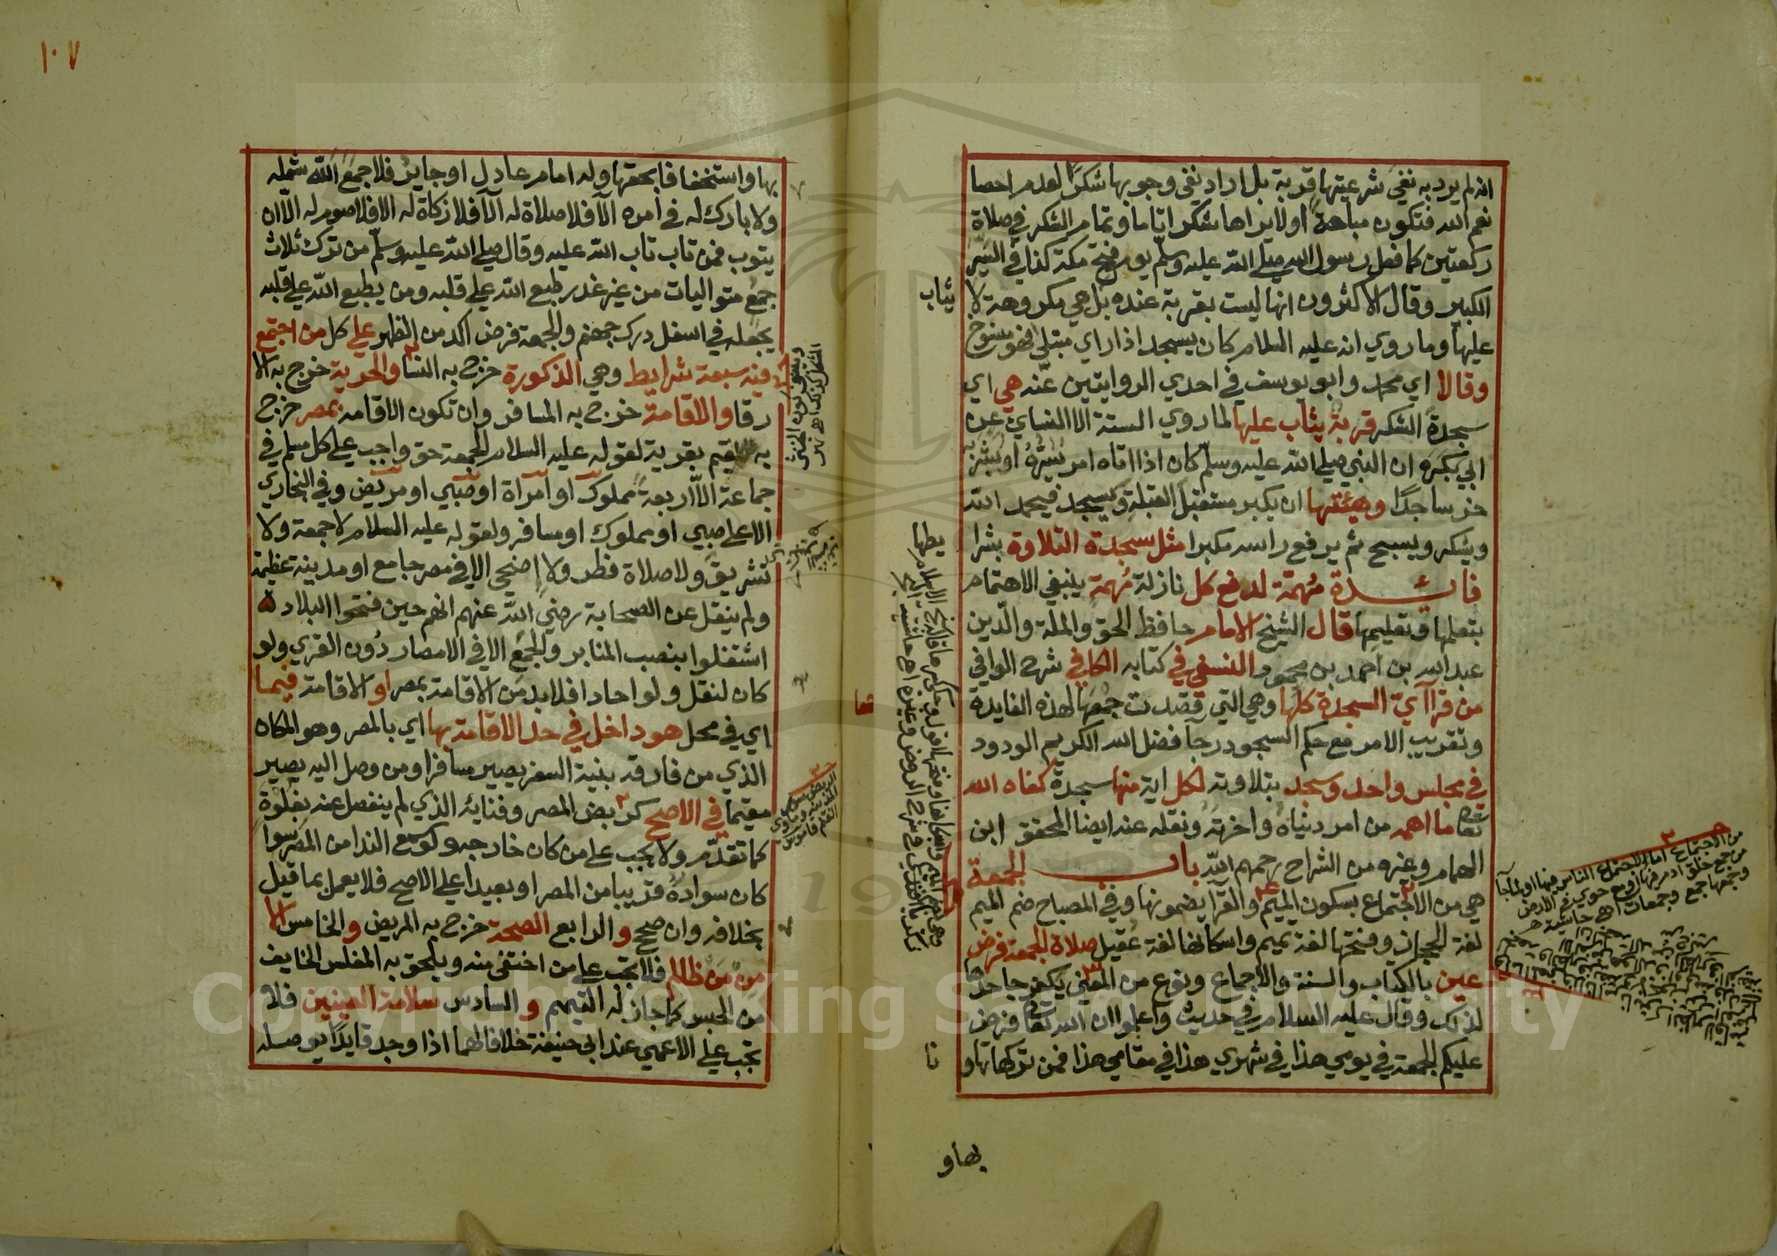 انه لم يرد به نفي شرعيتها قربة بل اراد نفي وجوبها شكرا لعدم احصا
نعم الله فتكون مباحة او لا يراها شكرا تاما وتمام الشكر في صلاة
ركعتين كما فعل رسول الله صلى الله عليه وسلم يوم فتح مكة كذا في السير
الكبير وقال الاكثرون انها ليست بقربة عنده بل هي مكروهة لا
يثاب
عليها وما روي انه عليه السلام كان يسجد اذا راي مبتلى فهو منسوخ
وقالا اي محمد وابو يوسف في احدي الروايتين عنه هي اي
سجدة الشكر قربة يثاب عليها لما روي الستة الا النسائي عن
ابي بكرة ان النبي صلي الله عليه وسلم كان اذا اتاه امر يسره او بشر به
خر ساجدا وهيئتها ان يكبر مستقبل القبلة ويسجد فيحمد الله
ويشكر ويسبح ثم يرفع راسه مكبرا مثل سجدة التلاوة بشرا
يطها
فائدة مهمة لدفع كل نازلة مهمة ينبغي الاهتمام
بتعلمها وتعليمها قال الشيخ الامام حافظ الحق والملة والدين
عبد الله بن احمد بن محمود النسفي في كتابه الكافي شرح الوافي
من قرا آي السجدة كلها وهي التي قصدت جمعها لهذه الفايدة
وتقريب الامر مع حكم السجود رجا فضل الله الكريم الودود
في مجلس واحد وسجد بتلاوته لكل اية منها سجدة كفاه الله
تعالى ما اهمه من امر دنياه واخرته ونقله عنه ايضا المحقق ابن
الهمام وغيره من الشراح رحمهم الله باب الجمعة
هي من الاجتماع بسكون الميم والقرا يضمونها وفي المصباح ضم الميم
لغة الحجاز وفتحها لغة تميم واسكانها لغة عقيل صلاة الجمعة فرض
عين بالكتاب والسنة والاجماع ونوع من المعني يكفر جاحدها
لذلك وقال عليه السلام في حديث واعلموا ان الله تعالى فرض
عليكم الجمعة في يومي هذا في شهري هذا في مقامي هذا فمن تركها تهاو
نا
بها و
١٠٧
بها واستخفافا بحقها وله امام عادل او جاير فلا جمع الله شمله
ولا بارك له في امره الا فلا صلاة له الا فلا زكاة له الا فلا صوم له الا ان
يتوب فمن تاب تاب الله عليه وقال صلي الله عليه وسلم من ترك ثلاث
جمع متواليات من غير عذر طبع الله علي قلبه ومن يطبع الله علي قلبه
يجعله في اسفل درك جهنم والجمعة فرض اكد من الظهر علي كل من اجتمع
فيه سبعة شرايط وهي الذكورة خرج به النسا والحرية خرج به الا
رقا والاقامة خرج به المسافر وان تكون الاقامة بمصر خرج
به المقيم بقرية لقوله عليه السلام الجمعة حق واجب علي كل مسلم في
جماعة الا اربعة مملوك او امراة او صبي او مريض وفي البخاري
الا علي صبي او مملوك او مسافر ولقوله عليه السلام لا جمعة ولا
تشريق ولا صلاة فطر ولا اضحي الا في مصر جامع او مدينة عظيمة
ولم ينقل عن الصحابة رضي الله عنهم انهم حين فتحوا البلاد
اشتغلوا بنصب المنابر والجمع الا في الامصار دون القري ولو
كان لنقل ولو احادا فلا بد من الاقامة بمصر او الاقامة فيما
اي في محل هو داخل في حد الاقامة بها اي بالمصر وهو المكان
الذي من فارقه بنية السفر يصير مسافرا ومن وصل اليه يصير
مقيما في الاصح كربض المصر وفنايه الذي لم ينفصل عنه بغلوة
كما تقدم ولا يجب علي من كان خارجه ولو سمع الندا من المصر سوا
كان سواده قريبا من المصر او بعيدا علي الاصح فلا يعمل بما قيل
بخلافه وان صحح والرابع الصحة خرج به المريض والخامس الا
من من ظالم فلا تجب علي من اختفي منه ويلحق به المفلس الخايف
من الحبس كما جاز له التيمم والسادس سلامة العينين فلا
تجب علي الاعمي عند ابي حنيفة خلافا لهما اذا وجد قايدا يوصله
Copyright © King Saud University